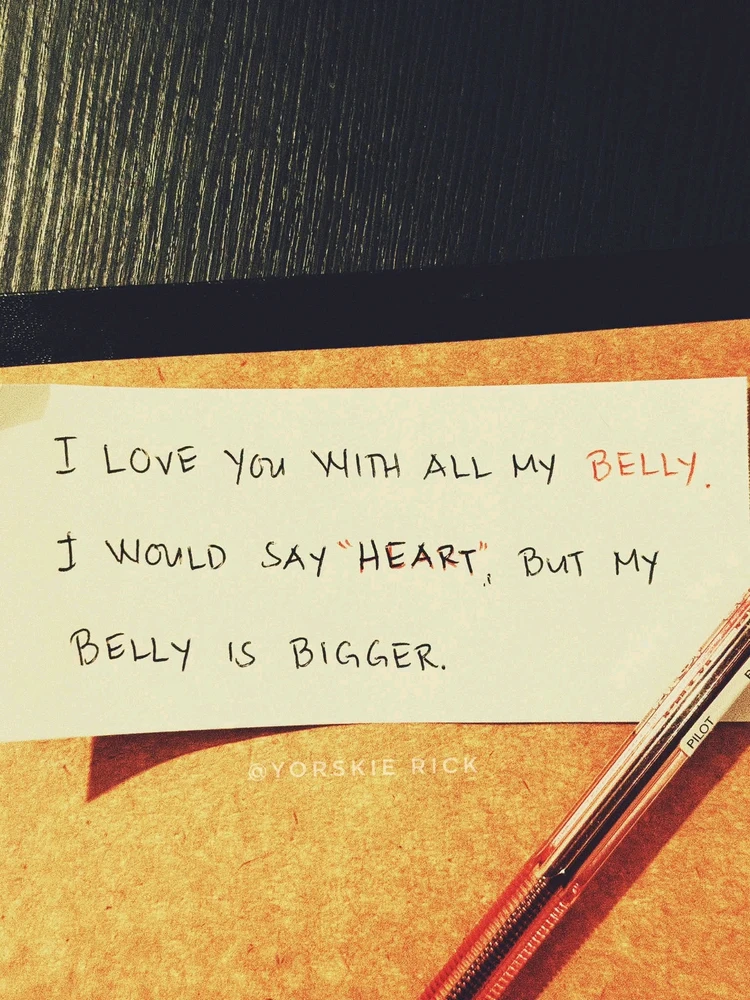 I LOVE YOU WITH ALL MY BELLY.
I WOULD SAY "HEART", BUT MY
BELLY IS BIGGER.
PILOT
@YORSKIE RICK